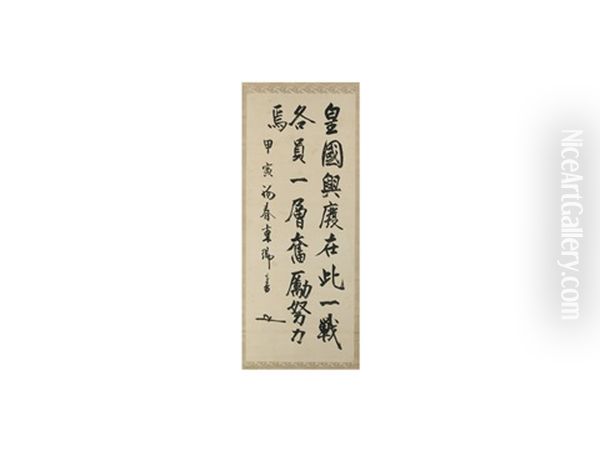 皇國興廢在此一戰
各員一層奮勵努力
焉 甲寅初春東瑞書
NiceArtGallery.com